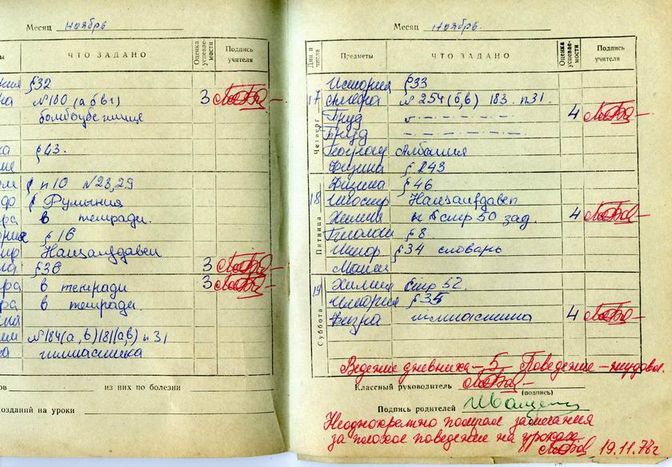 Месяц ноябрь
ЧТО ЗАДАНО
Оценка успевае-мости
Подпись учителя
§32
№180 (а б в г)
3
§43.
§ п10 №28,29
§ Румыния
в тетради.
§ 16
§36
3
в тетради
3
в тетради.
№184(а,в)181(ав) п31
гимнастика
из них по болезни
опозданий на уроки
Месяц ноябрь
Дни и числа
Предметы
ЧТО ЗАДАНО
Оценка успевае-мости
Подпись учителя
История §33
17
Четверг
№254(б,в) 183. п31.
4
Труд
Труд
Географ Албания
Физика § 243
Физика § 46
18
Пятница
Химия стр 50 зад.
4
§ 8
§ 34 словарь
19
Суббота
Химия стр 52.
История §35
Физра гимнастика
4
Ведение дневника – 5 Поведение – неудовл.
Классный руководитель
(подпись)
Подпись родителей
Неоднократно получал замечания
за плохое поведение на уроках.
19.11.77г